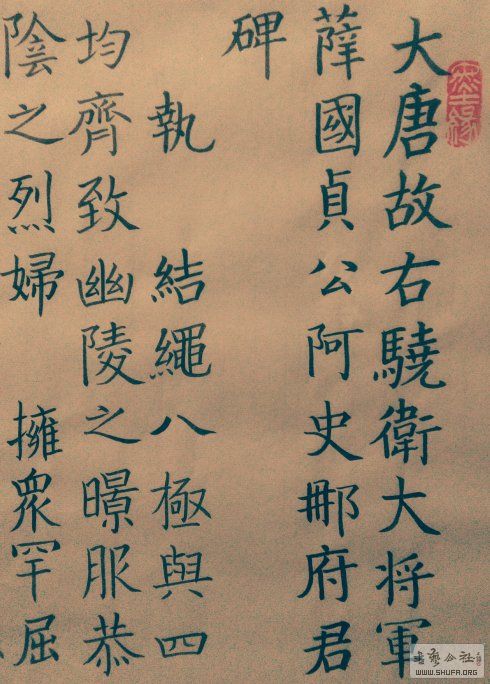 大唐故右驍衛大将軍
薛國貞公阿史郍府君
碑
執 結繩八極與四
均齊致幽陵之暻服恭
陰之烈婦 擁衆罕屈
WWW.SHUFA.ORG